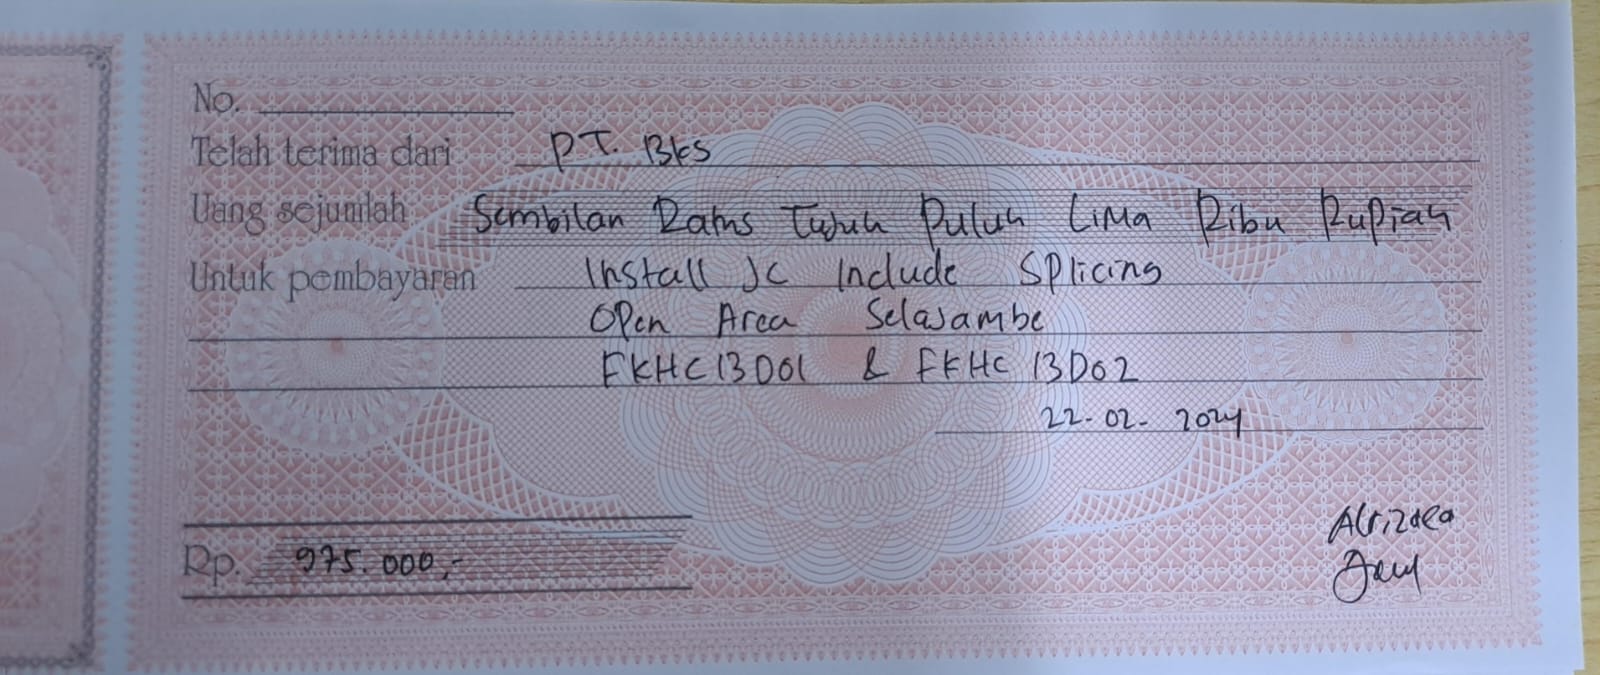 No.
Telah terima dari PT. BKS
Uang sejumlah Sembilan Ratus Tujuh Puluh Lima Ribu Rupiah
Untuk pembayaran Install JC Include Splicing
Open Area Selajambe
FKHC13D01 & FKHC13D02
22-02-2024
Rp. 975.000,-